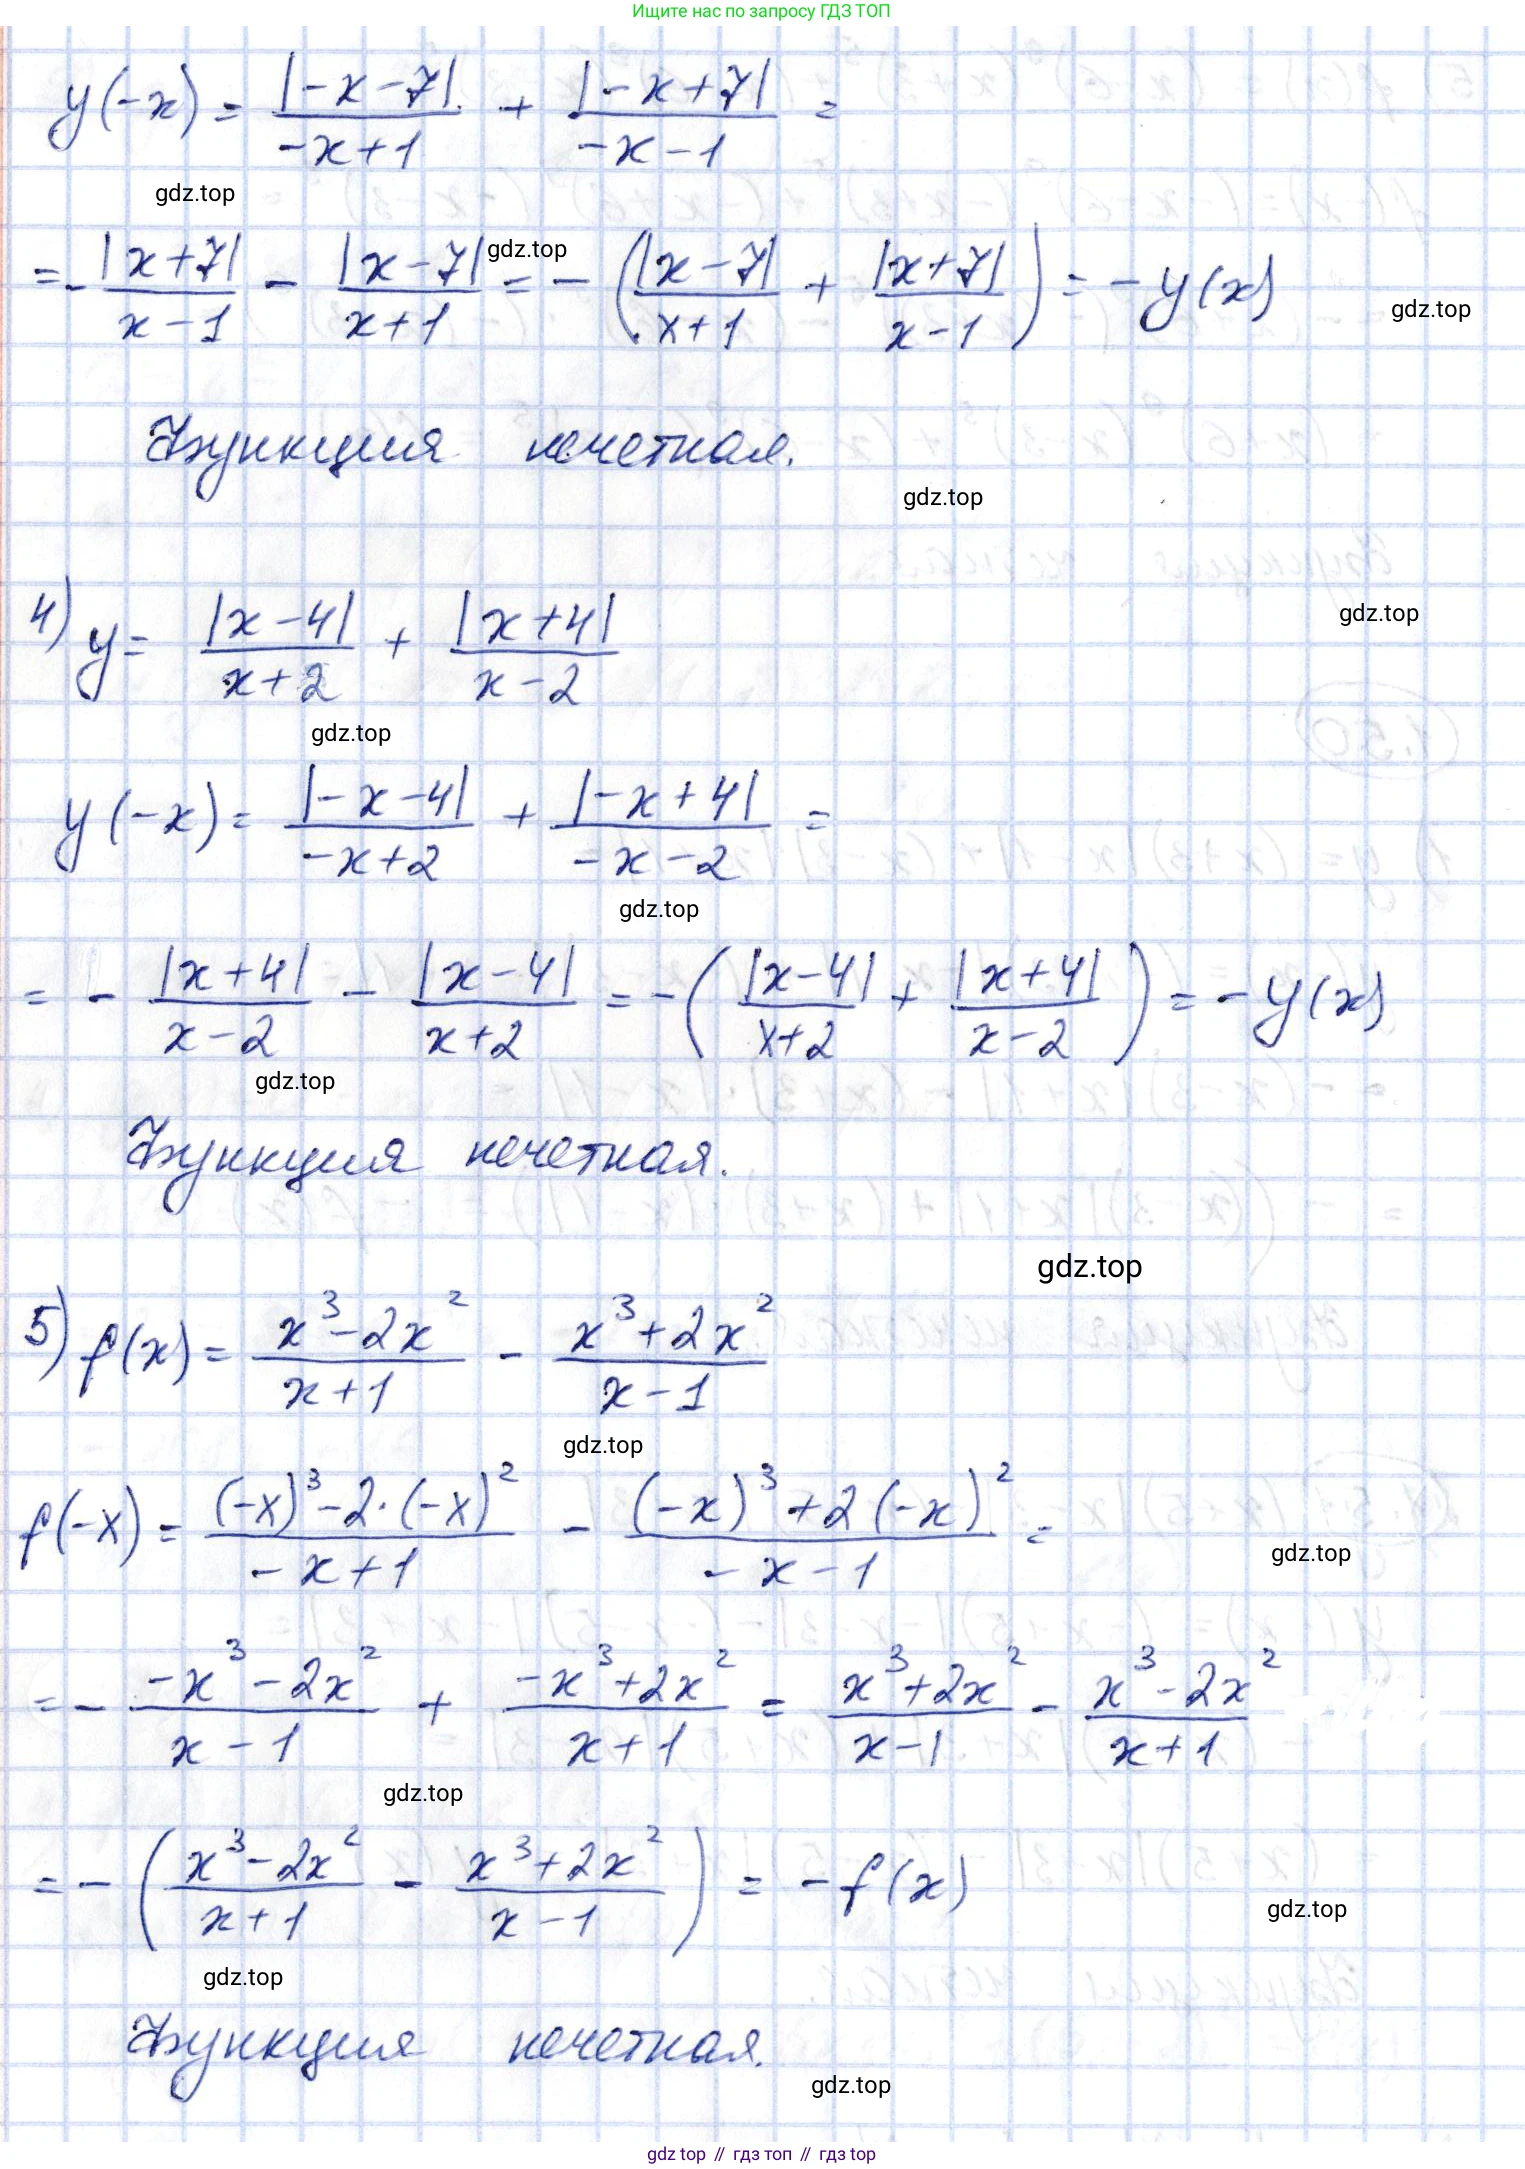 Ищите нас по запросу ГДЗ ТОП
y(-x) = |-x-7| / (-x+1) + |-x+7| / (-x-1) =
gdz.top
= - |x+7| / (x-1) - |x-7| / (x+1) = - ( |x-7| / (x+1) + |x+7| / (x-1) ) = -y(x)
gdz.top
gdz.top
Функция нечетная.
gdz.top
4) y = |x-4| / (x+2) + |x+4| / (x-2)
gdz.top
gdz.top
y(-x) = |-x-4| / (-x+2) + |-x+4| / (-x-2) =
gdz.top
= - |x+4| / (x-2) - |x-4| / (x+2) = - ( |x-4| / (x+2) + |x+4| / (x-2) ) = -y(x)
gdz.top
Функция нечетная.
gdz.top
5) f(x) = (x³-2x²) / (x+1) - (x³+2x²) / (x-1)
gdz.top
f(-x) = ((-x)³-2·(-x)²) / (-x+1) - ((-x)³+2(-x)²) / (-x-1) =
gdz.top
= - (-x³-2x²) / (x-1) + (-x³+2x²) / (x+1) = (x³+2x²) / (x-1) - (x³-2x²) / (x+1)
gdz.top
= - ( (x³-2x²) / (x+1) - (x³+2x²) / (x-1) ) = -f(x)
gdz.top
gdz.top
Функция нечетная.
gdz.top
gdz top // гдз топ // гдз top